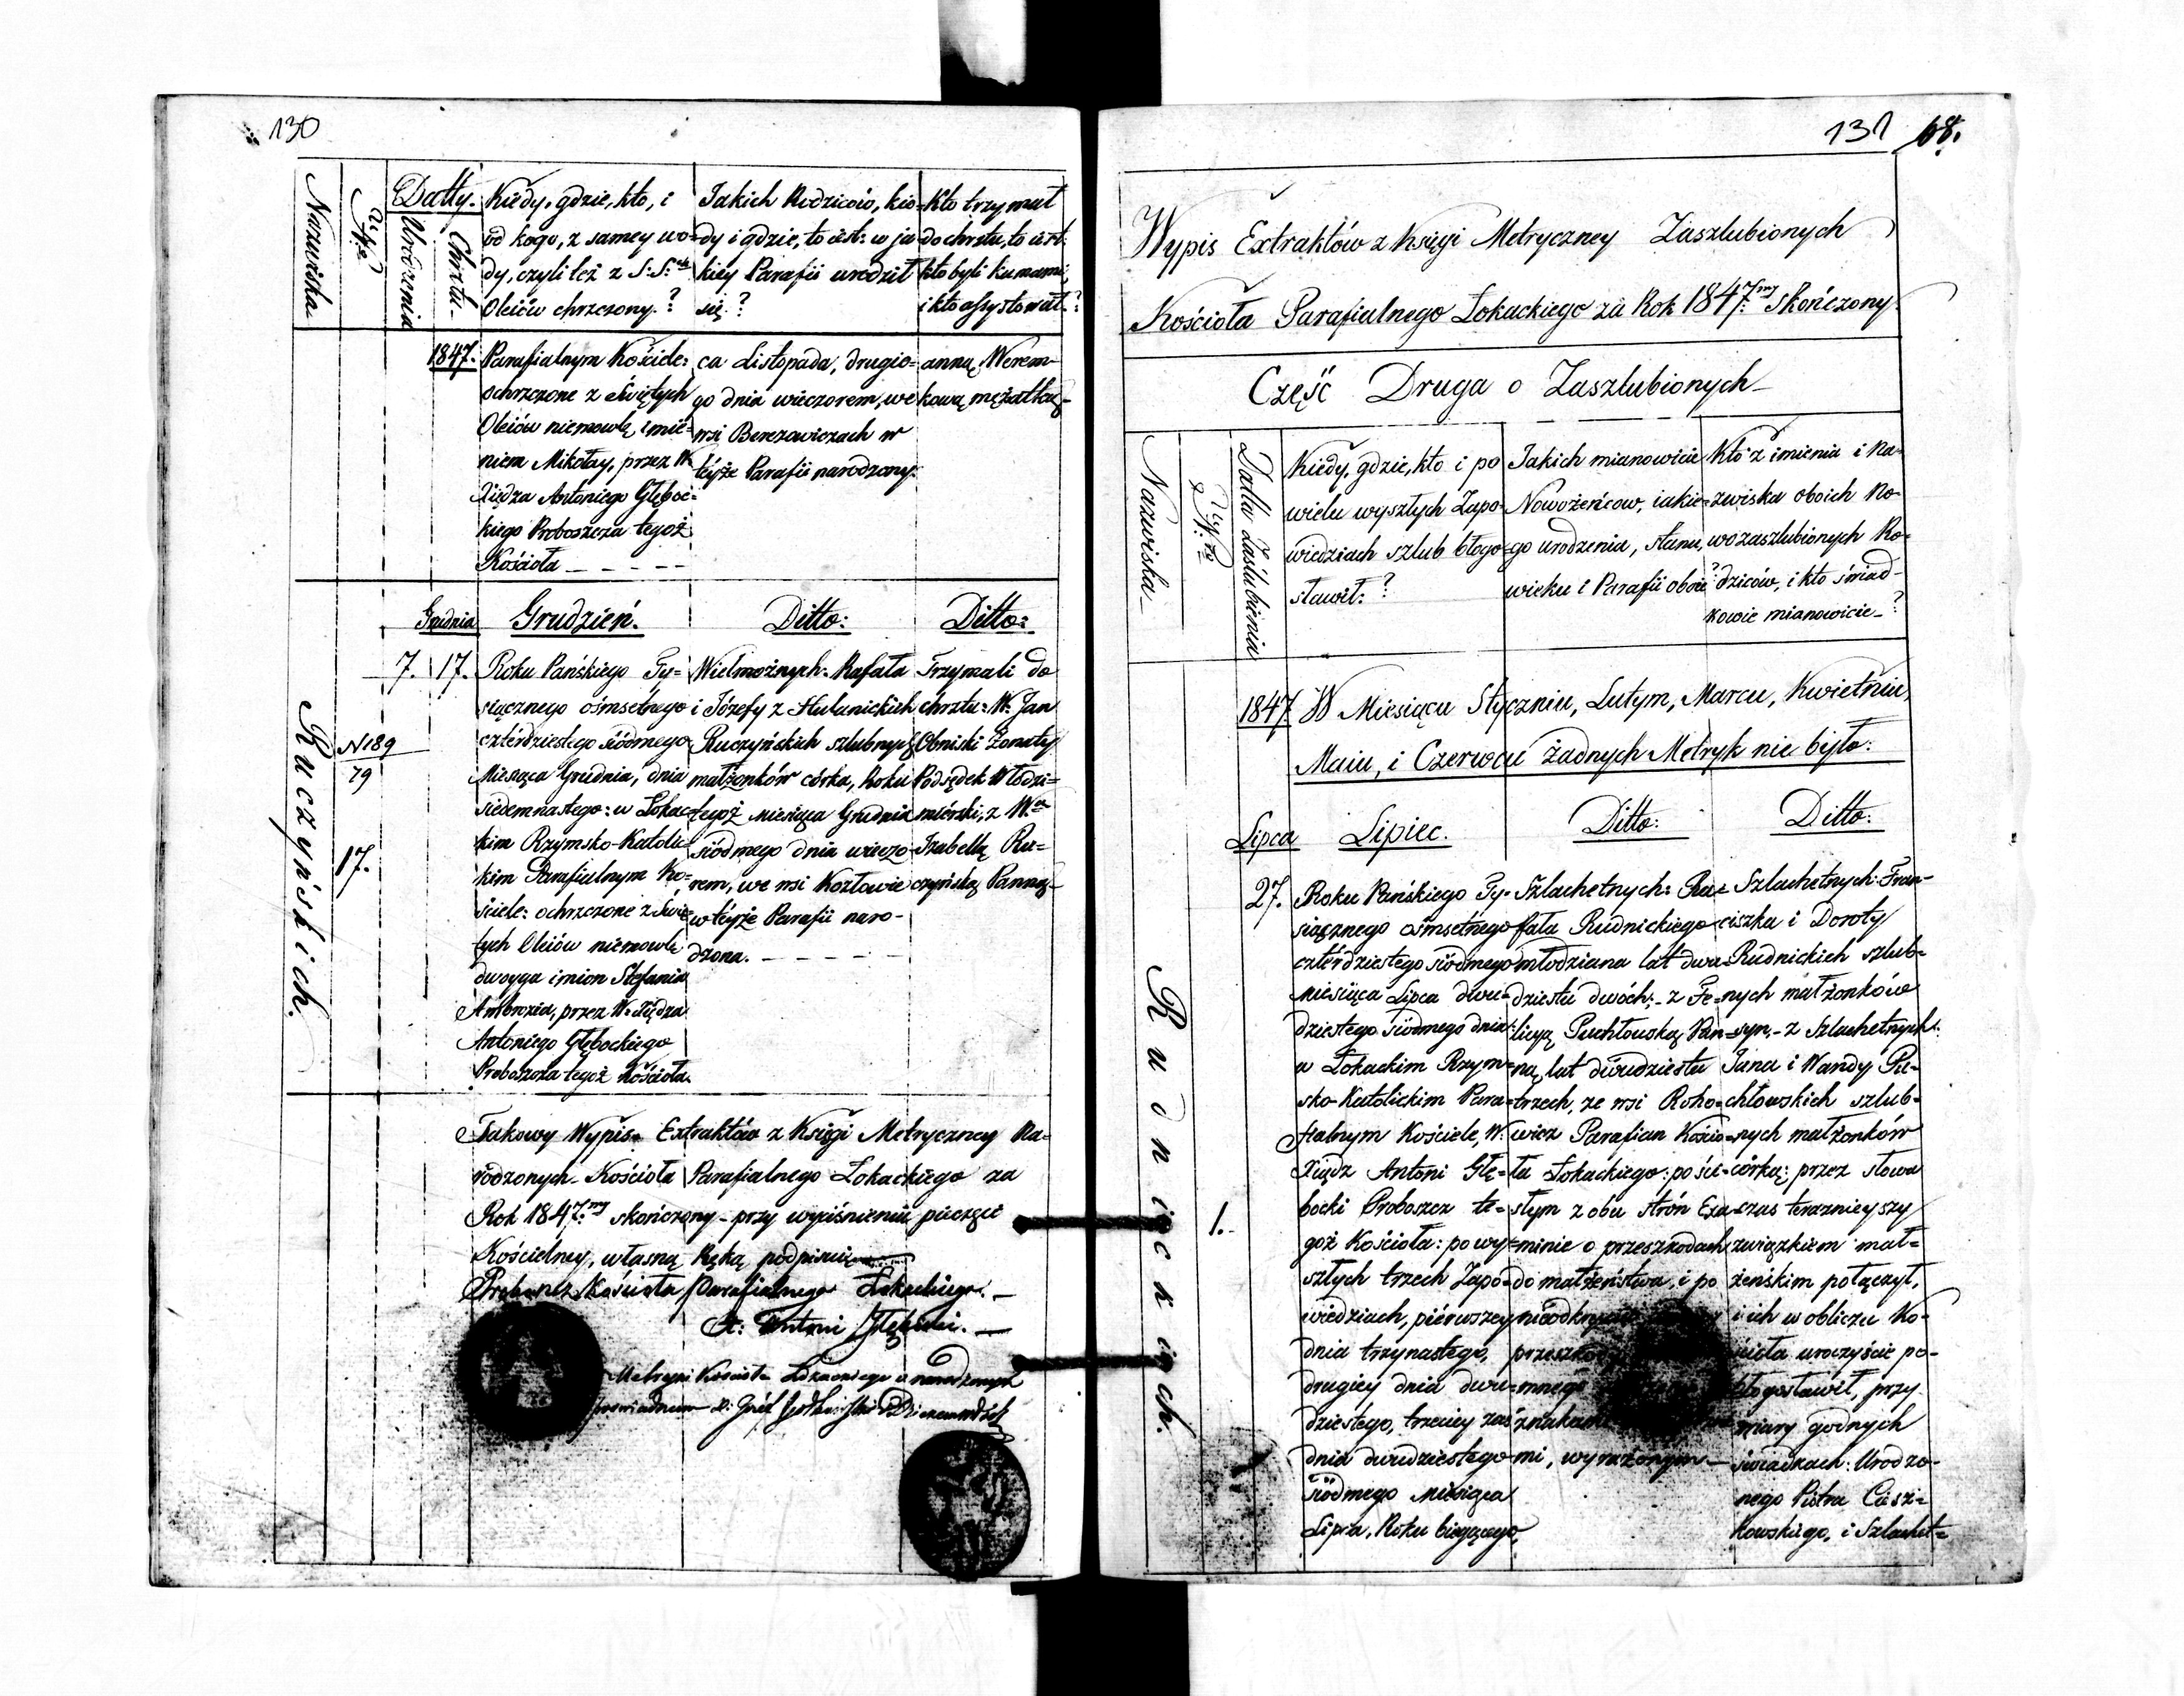 130
Nazwiska
Datty.
Urodzenia
Chrztu.
Kiedy, gdzie, kto, i
od kogo, z samey wo-
dy, czyli też z S: S:ch
Oleiów chrzczony.?
Jakich Rodziców, kie-
dy i gdzie, to iest: w ja
kiey Parafii urodził
się.?
Kto trzymał
do chrztu, to iest:
kto byli kumami,
i kto assystował.?
1847.
Parafialnym Kościele:
ochrzczone z Świętych
Oleiów niemowlę imie-
niem Mikołay, przez W.
Xiędza Antoniego Głęboc-
kiego Proboszcza tegoż
Kościoła
ca Listopada, drugie-
go dnia wieczorem, we
wsi Berezowiczach w
teyże Parafii narodzony.
anną Werem-
kową mężatką
Grudnia
Grudzień.
Ditto:
Ditto:
Ruczyńskich.
N 189
79
17.
7.
17.
Roku Pańskiego Ty-
siącznego ośmsetnego
czterdziestego siódmego
Miesiąca Grudnia, dnia
siedemnastego: w Łokac-
kim Rzymsko-Katolic-
kim Parafialnym Ko-
ściele: ochrzczone z Świę-
tych Oleiów niemowlę
dwoyga imion Stefania
Ambrozia, przez W. Xiędza
Antoniego Głębockiego
Proboszcza tegoż Kościoła.
Wielmożnych: Rafała
i Józefy z Hulanickich
Ruczyńskich szlubnych
małżonków córka, Roku
tegoż miesiąca Grudnia
siódmego dnia wieczo-
rem, we wsi Kozłowie
w teyże Parafii naro-
dzona.
Trzymali do
chrztu: W. Jan
Obniski Żonaty
Podsędek Włodzi-
mierski, z W.
Izabellą Ru-
czyńską Panną
Takowy Wypis Extraktów z Księgi Metryczney Na-
rodzonych Kościoła Parafialnego Łokackiego za
Rok 1847.my skończony - przy wyciśnieniu pieczęci
Kościelney, własną Ręką podpisuię
Proboszcz Kościoła Parafialnego Łokackiego.
X: Antoni Głębocki.
Metryki Kościoła Łokackiego o narodzonych
131 68.
Wypis Extraktów z Księgi Metryczney Zaszlubionych
Kościoła Parafialnego Łokackiego za Rok 1847.my Skończony
Część Druga o Zaszlubionych
Nazwiska
Datta Zaślubienia
Kiedy, gdzie, kto i po
wielu wyszłych Zapo-
wiedziach szlub błogo-
sławił:?
Jakich mianowicie
Nowożeńcow, iakie-
go urodzenia, stanu,
wieku i Parafii oboie?
Kto z imienia i na-
zwiska oboich no-
wozaszlubionych Ro-
dziców, i kto świad-
kowie mianowicie?
1847
W Miesiącu Styczniu, Lutym, Marcu, Kwietniu,
Maiu, i Czerwcu żadnych Metryk nie było:
Lipca
Lipiec.
Ditto:
Ditto:
Rudnickich.
1.
27.
Roku Pańskiego Ty-
siącznego ośmsetnego
czterdziestego siódmego
Miesiąca Lipca dwu-
dziestego siódmego dnia:
w Łokackim Rzym-
sko-Katolickim Para-
fialnym Kościele, W:
Xiądz Antoni Głę-
bocki Proboszcz te-
goż Kościoła: po wy-
szłych trzech Zapo-
wiedziach, piérwszey
dnia trzynastego,
drugiey dnia dwu-
dziestego, trzeciey zaś
dnia dwudziestego
siódmego Miesiąca
Lipca, Roku bieżącego,
Szlachetnych: Ra-
fała Rudnickiego
młodziana lat dwu-
dziestu dwóch: z Fe-
licyą Puchłowską Pan-
ną, lat dwudziestu
trzech, ze wsi Roho-
wicz Parafian Kościo-
ła Łokackiego: po ści-
słym z obu strón Exa-
minie o przeszkodach
do małżeństwa, i po
mi, wyrażonym
Szlachetnych: Fran-
ciszka i Doroty
Rudnickich szlub-
nych małżonków
syn, - z Szlachetnych:
Jana i Wandy Pu-
chłowskich szlub-
nych małżonków
córką: przez słowa
czas teraznieyszy
związkiem mał-
żeńskim połączył,
i ich w obliczu Ko-
ścioła uroczyście po-
błogosławił, przy
wiary godnych
świadkach: Urodzo-
nego Piotra Ciesz-
kowskiego, i Szlachet-